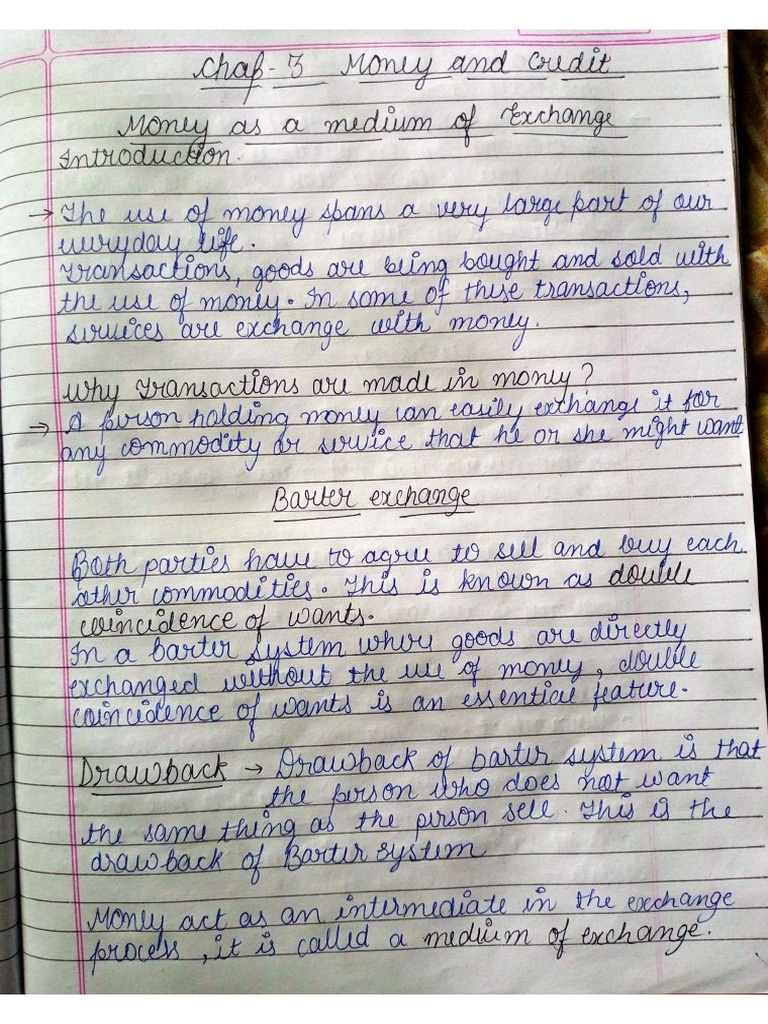 Chap-3 Money and Credit
Money as a medium of Exchange
Introduction.
→ The use of money spans a very large part of our
everyday life.
Transactions, goods are being bought and sold with
the use of money. In some of these transactions,
services are exchange with money.
Why transactions are made in money?
→ A person holding money can easily exchange it for
any commodity or service that he or she might want
Barter exchange
Both parties have to agree to sell and buy each
other commodities. This is known as double
coincidence of wants.
In a barter system where goods are directly
exchanged without the use of money, double
coincidence of wants is an essential feature.
Drawback → Drawback of barter system is that
the person who does not want
the same thing as the person sell. This is the
drawback of Barter system
Money act as an intermediate in the exchange
process, it is called a medium of exchange.